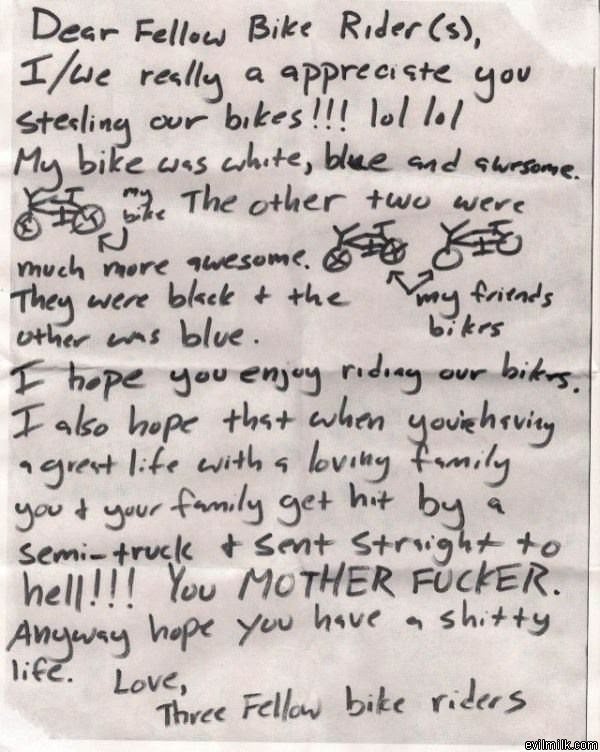 Dear Fellow Bike Rider(s),
I/we really a appreciate you
stealing our bikes!!! lol lol
My bike was white, blue and awesome.
my bike The other two were
much more awesome.
They were black & the my friends
other was blue. bikes
I hope you enjoy riding our bikes.
I also hope that when you're having
a great life with a loving family
you & your family get hit by a
semi-truck & sent straight to
hell!!! You MOTHER FUCKER.
Anyway hope you have a shitty
life. Love,
Three Fellow bike riders
evilmilk.com